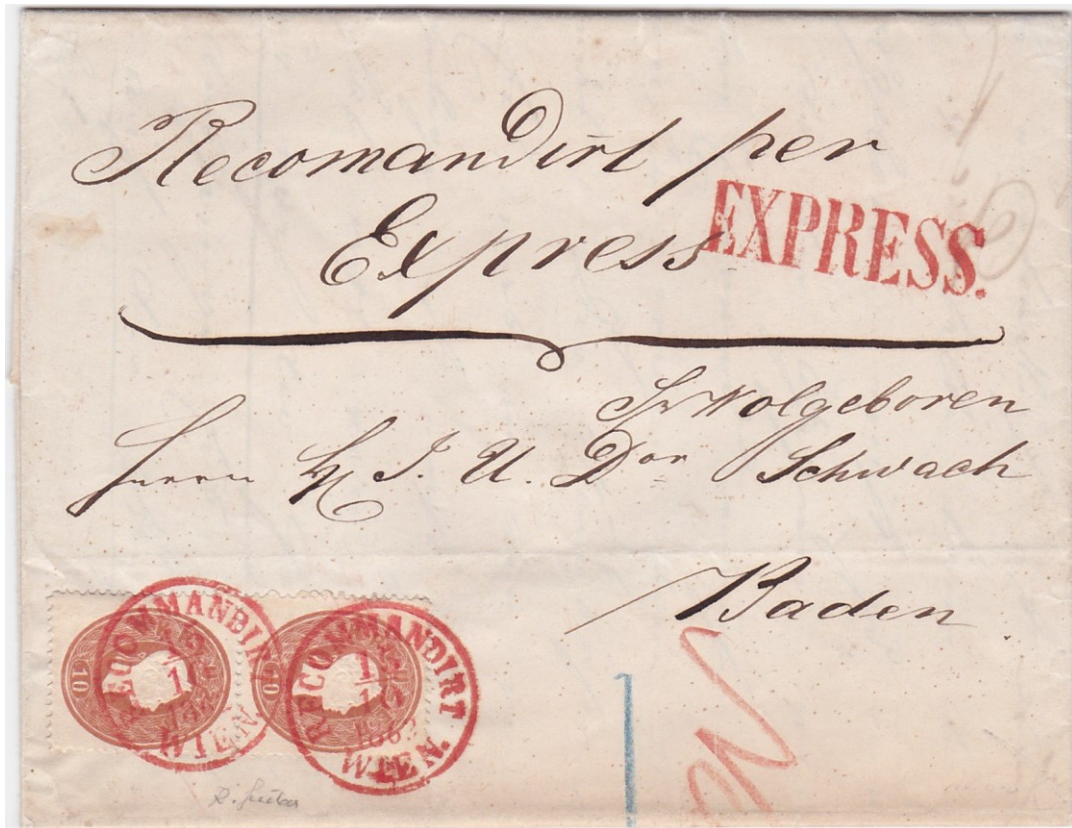 Recomandirt per
Express
EXPRESS.
Wolgeboren
Herrn J. U. Dor Schwach
Baden
RECOMMANDIRT
WIEN.
10
RECOMMANDIRT
1862
WIEN.
10